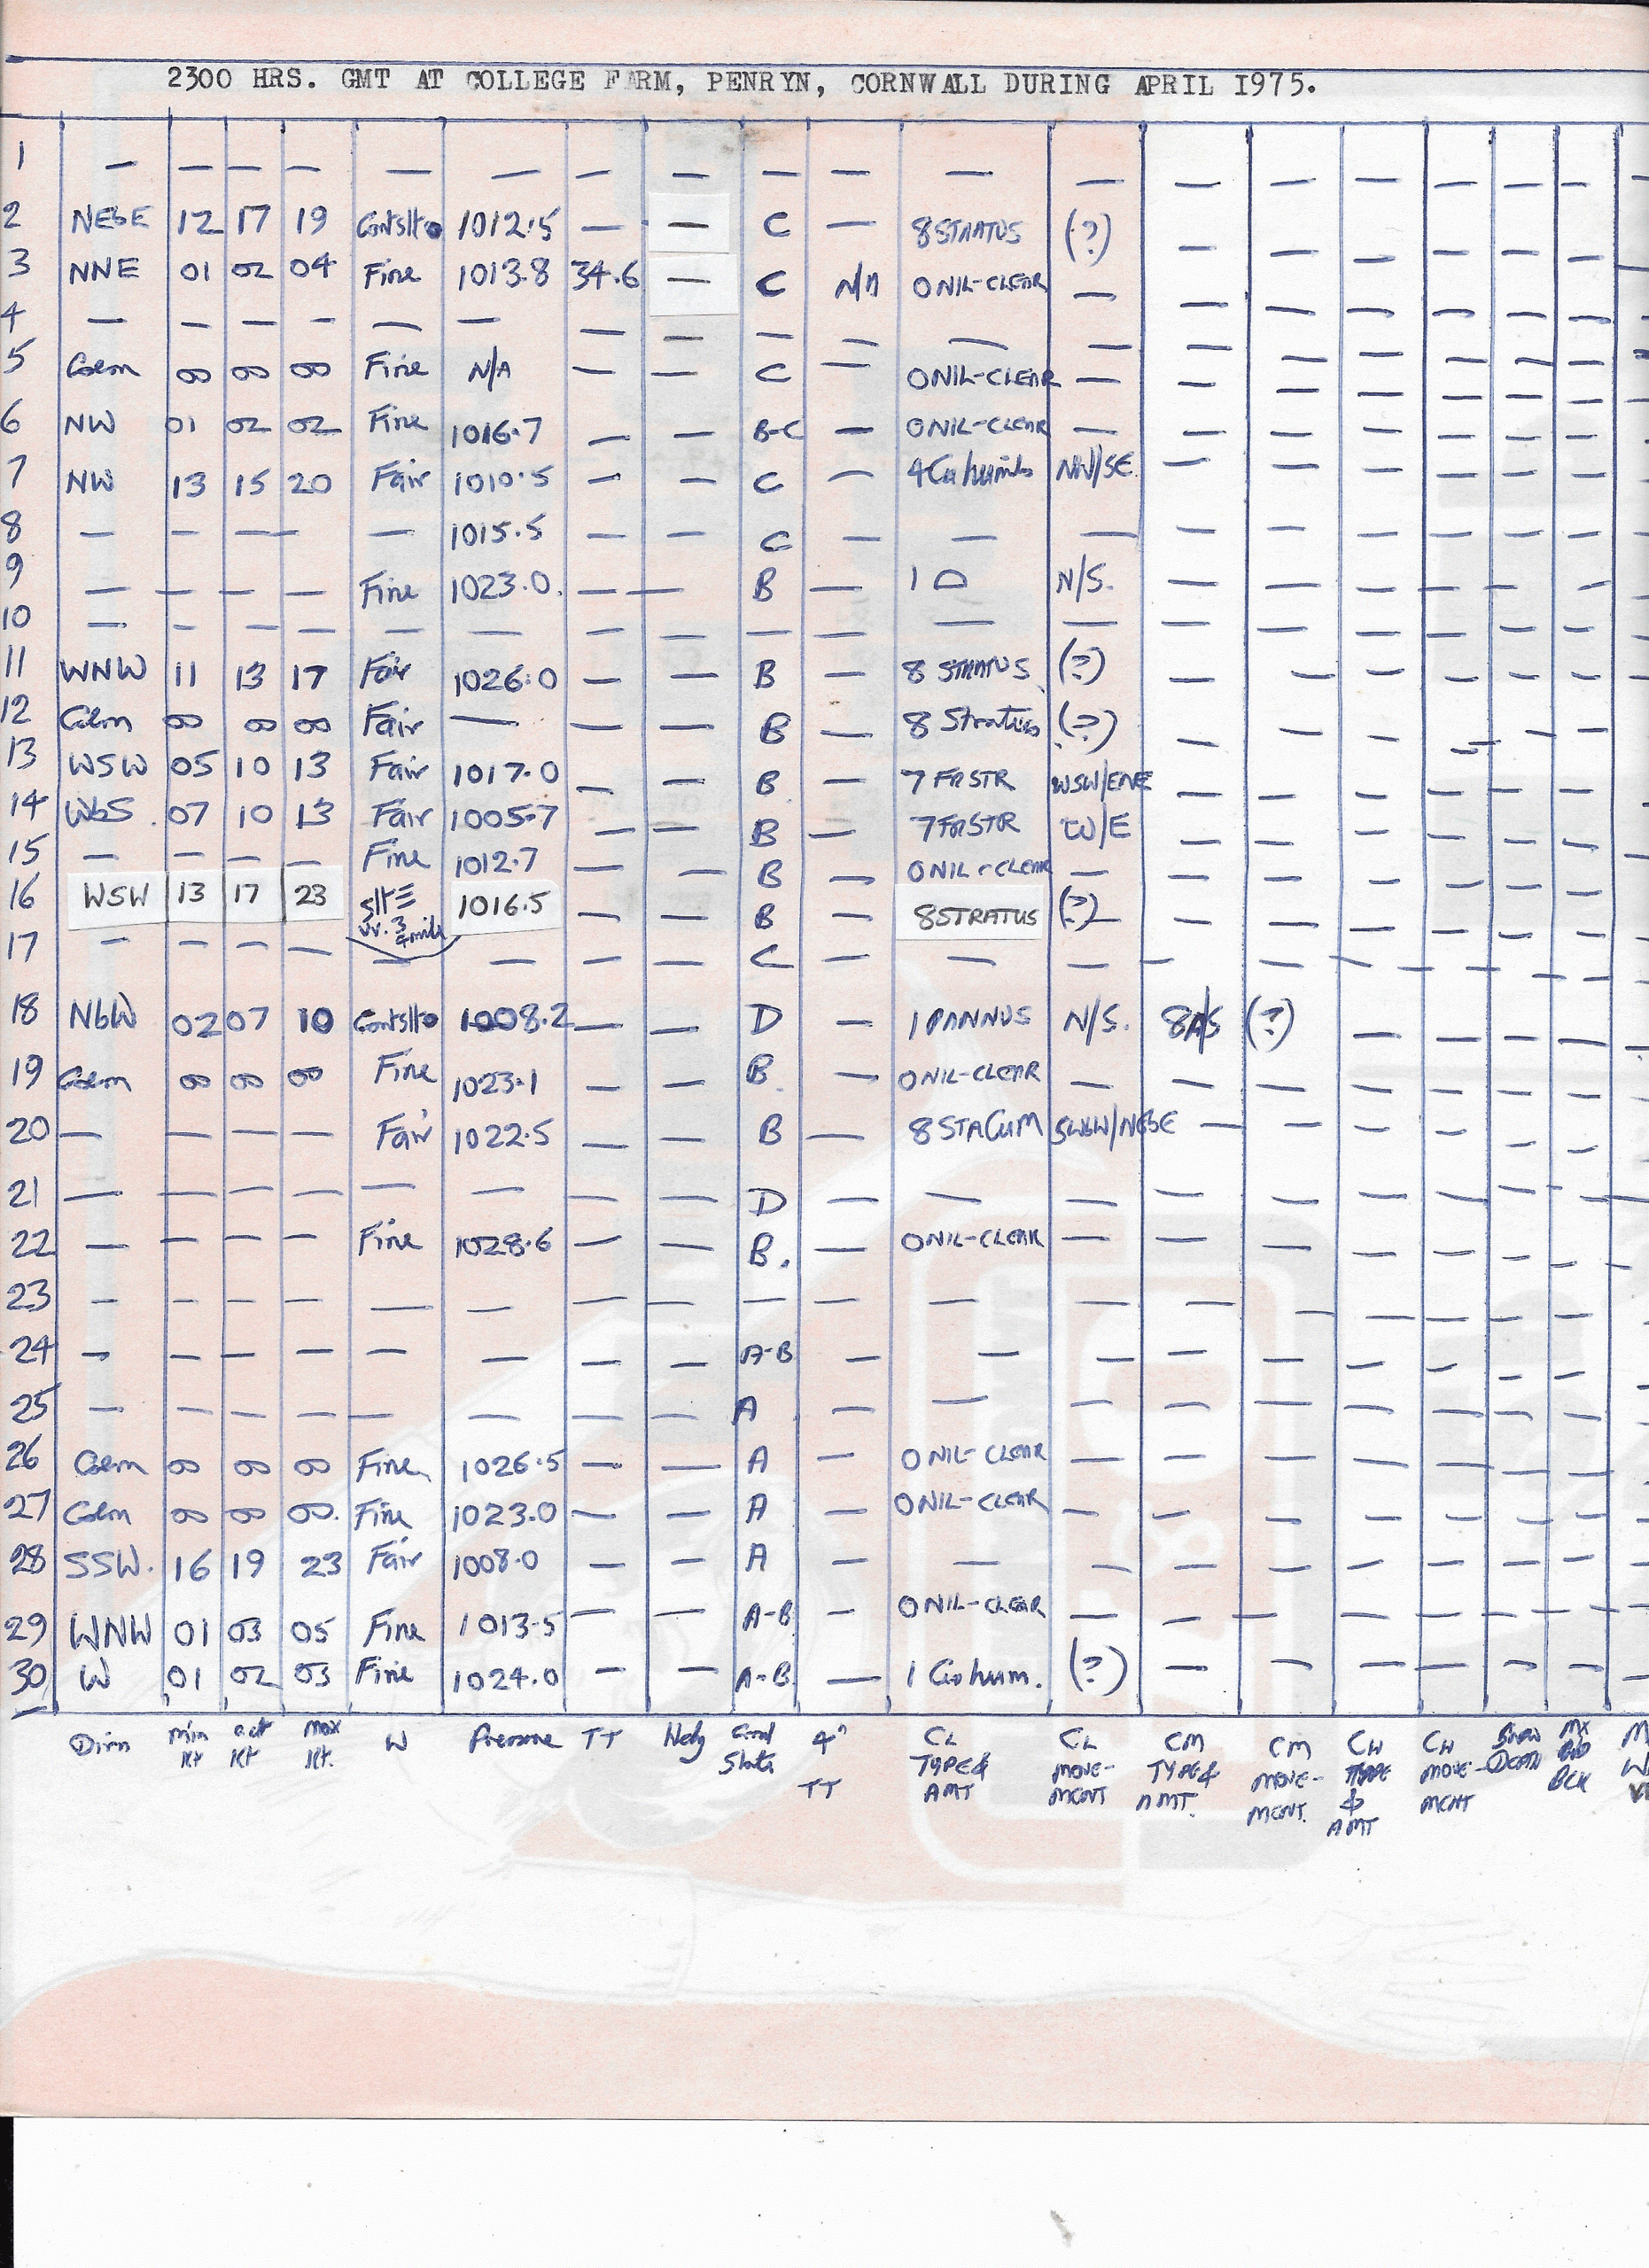 2300 HRS. GMT AT COLLEGE FARM, PENRYN, CORNWALL DURING APRIL 1975.
1 — — — — — — — — — — — — — — — — — — —
2 NEbE 12 17 19 1012.5 — — C — 8 STRATUS (?) — — — — — — —
3 NNE 01 02 04 Fine 1013.8 34.6 — C N/A 0 NIL-CLEAR — — — — — — — —
4 — — — — — — — — — — — — — — — — — — —
5 Calm 00 00 00 Fine N/A — — C — 0 NIL-CLEAR — — — — — — — —
6 NW 01 02 02 Fine 1016.7 — — B-C — 0 NIL-CLEAR — — — — — — — —
7 NW 13 15 20 Fair 1010.5 — — C — 4 Cu humilis NW/SE — — — — — — —
8 — — — — — 1015.5 — — C — — — — — — — — — —
9 — — — — Fine 1023.0. — — B — 1 N/S. — — — — — — —
10 — — — — — — — — — — — — — — — — — — —
11 WNW 11 13 17 Fair 1026.0 — — B — 8 STRATUS (?) — — — — — — —
12 Calm 00 00 00 Fair — — — B — 8 Stratus (?) — — — — — — —
13 WSW 05 10 13 Fair 1017.0 — — B — 7 FRSTR WSW/ENE — — — — — — —
14 WbS. 07 10 13 Fair 1005.7 — — B — 7 FRSTR W/E — — — — — — —
15 — — — — Fine 1012.7 — — B — 0 NIL-CLEAR — — — — — — — —
16 WSW 13 17 23 slt≡ 1016.5 — — B — 8 STRATUS (?) — — — — — — —
17 — — — — — — — — C — — — — — — — — — —
18 NbW 02 07 10 1008.2 — — D — 1 PANNUS N/S. 8AS (?) — — — — —
19 Calm 00 00 00 Fine 1023.1 — — B. — 0 NIL-CLEAR — — — — — — — —
20 — — — — Fair 1022.5 — — B — 8 STACUM SWbW/NEbE — — — — — — —
21 — — — — — — — — D — — — — — — — — — —
22 — — — — Fine 1028.6 — — B. — 0 NIL-CLEAR — — — — — — — —
23 — — — — — — — — — — — — — — — — — — —
24 — — — — — — — — A-B — — — — — — — — — —
25 — — — — — — — — A — — — — — — — — — —
26 Calm 00 00 00 Fine 1026.5 — — A — 0 NIL-CLEAR — — — — — — — —
27 Calm 00 00 00. Fine 1023.0 — — A — 0 NIL-CLEAR — — — — — — — —
28 SSW. 16 19 23 Fair 1008.0 — — A — — — — — — — — — —
29 WNW 01 03 05 Fine 1013.5 — — A-B — 0 NIL-CLEAR — — — — — — — —
30 W 01 02 03 Fine 1024.0 — — A-B — 1 Cu hum. (?) — — — — — — —
Dirn min Kt act Kt max Kt. W Pressure TT Grnd State 4" TT CL TYPE & AMT CL MOVE-MENT CM TYPE & AMT. CM MOVE-MENT. CH TYPE & AMT CH MOVE-MENT